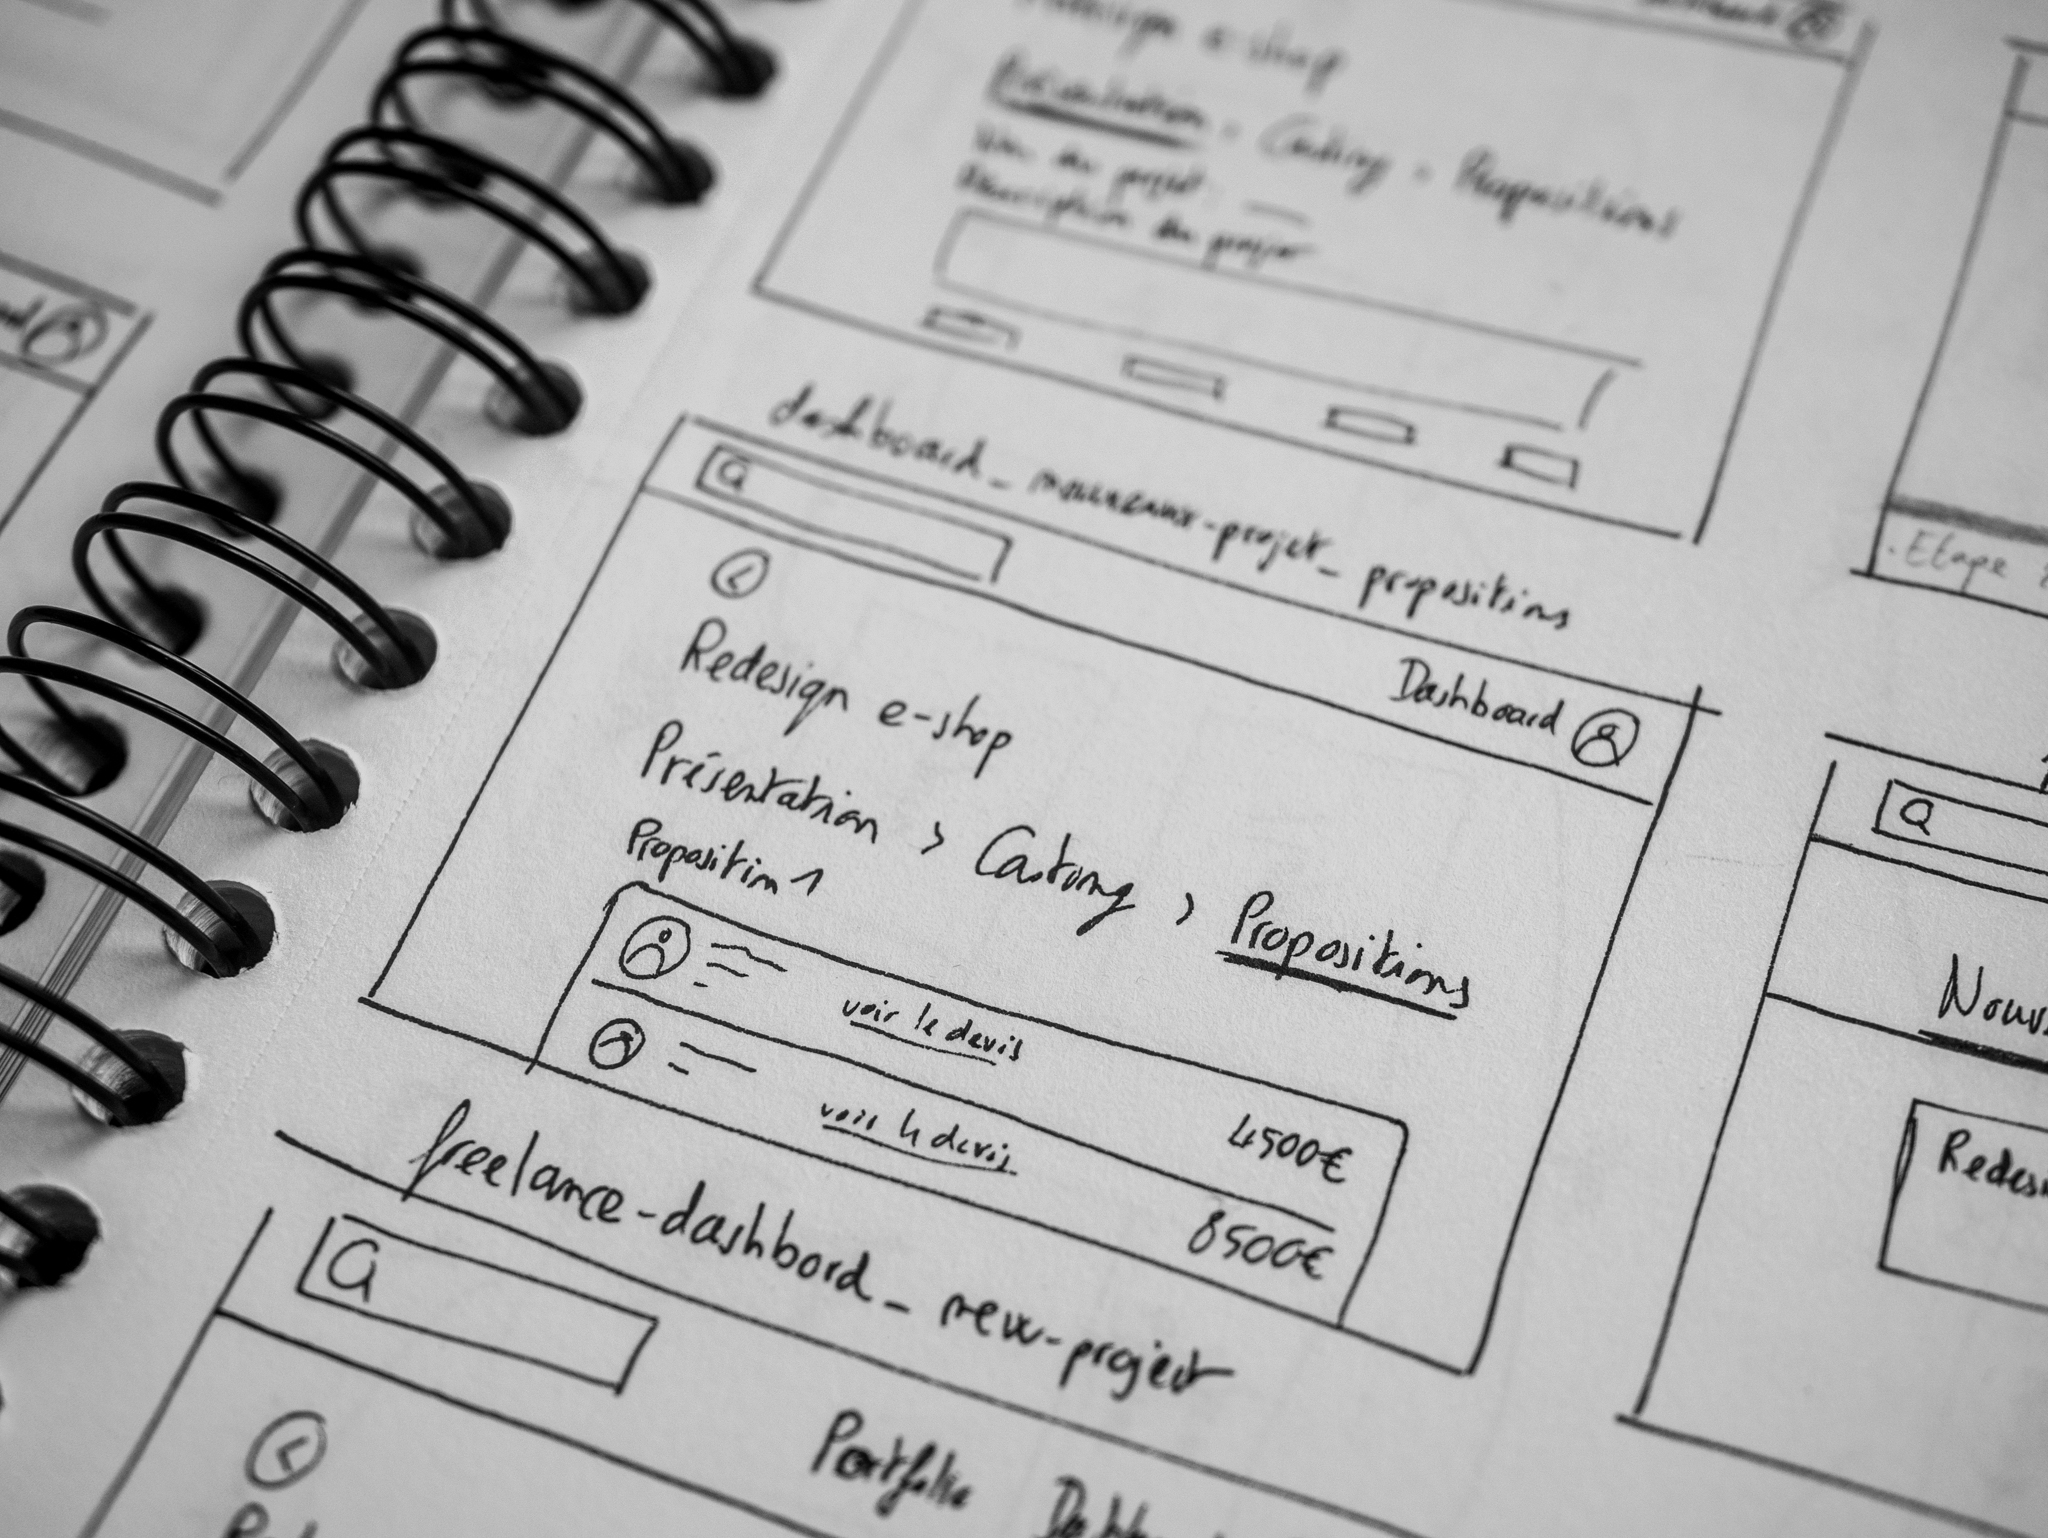 Redesign e-shop
Présentation > Casting > Propositions
Nom du projet :
Description du projet
dashboard_nouveaux-projet_propositions
Dashboard
Redesign e-shop
Présentation > Casting > Propositions
Proposition 1
voir le devis
4500€
voir le devis
8500€
.Etape
Nouv
Redesi
freelance-dashbord_new-project
Portfolio Dashb